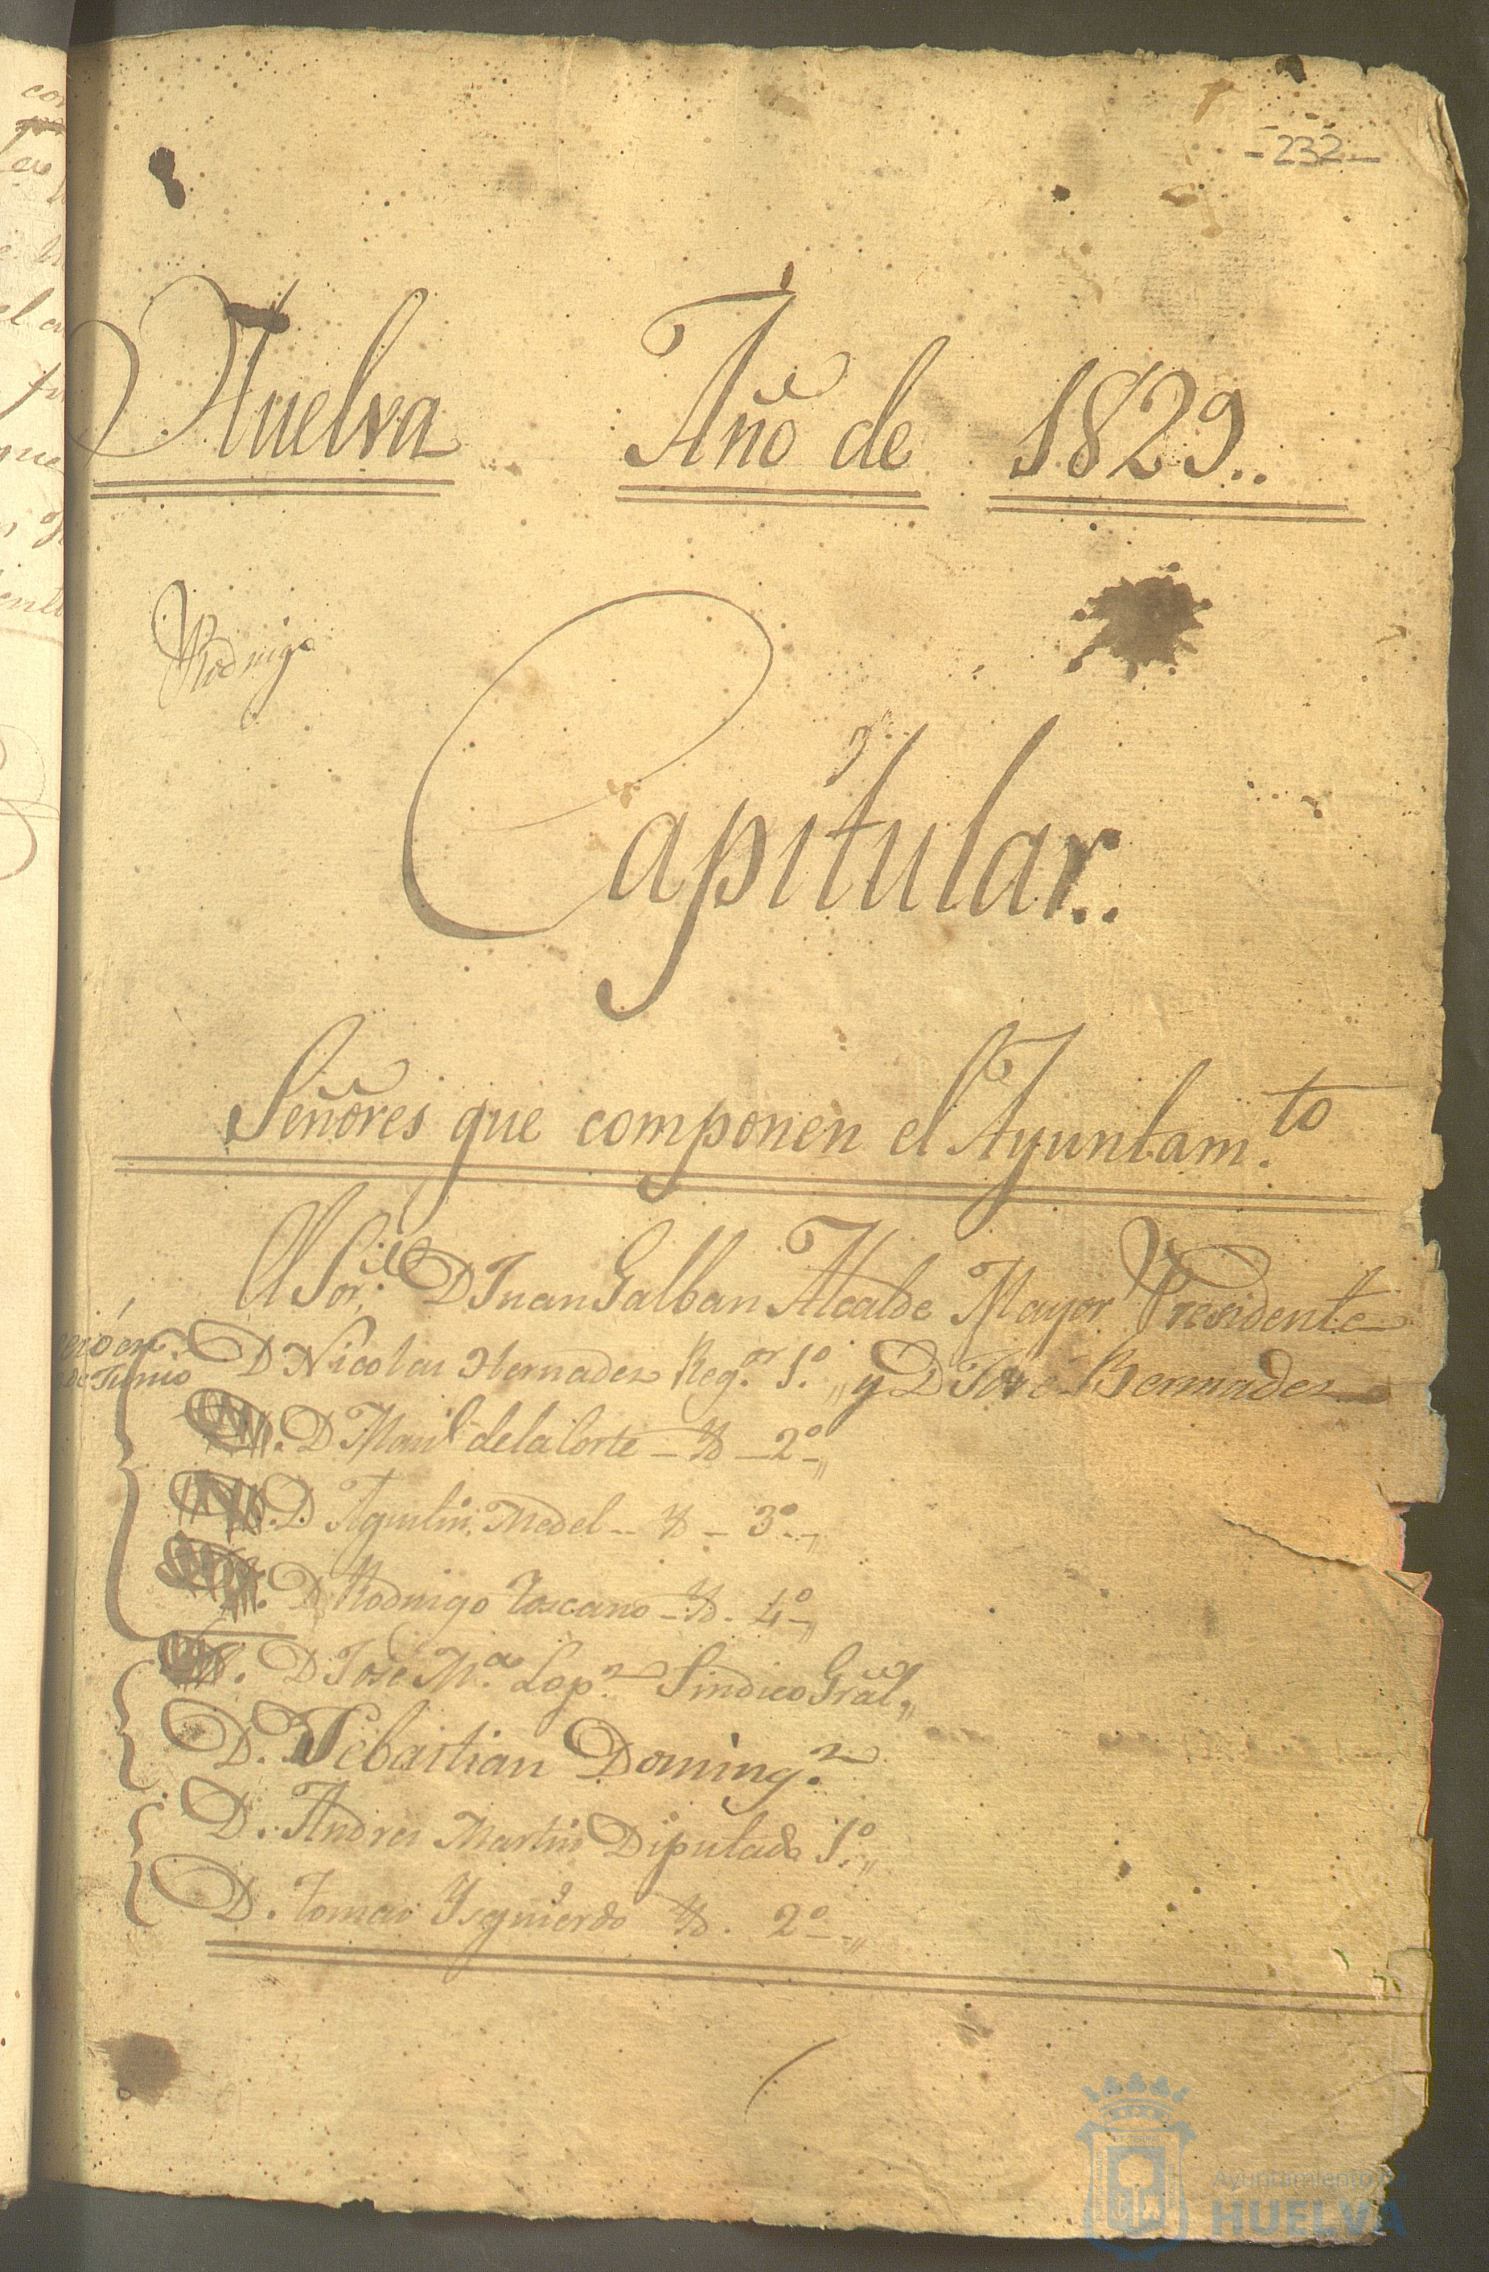 -232-
Huelva Año de 1829..
Rodrigo
Capitular..
Señores que componen el Ayuntam.to
El Sor. D Juan Galban Alcalde Mayor Presidente
D Nicolas Hernadez Reg.or 1.º,, y D Jose Bermudez
de Junio
D Man.l de la Corte - Yd - 2º-,,
D Agustin Medel - Yd - 3º-,,
D Rodrigo Toscano - Yd. 4º-,,
D Jose M.a Lop.z Sindico Gral,,
D. Sebastian Doming.z
D. Andres Martin Diputado 1.º,,
D. Tomas Ysquierdo Yd. 2º--,,
Ayuntamiento de
HUELVA